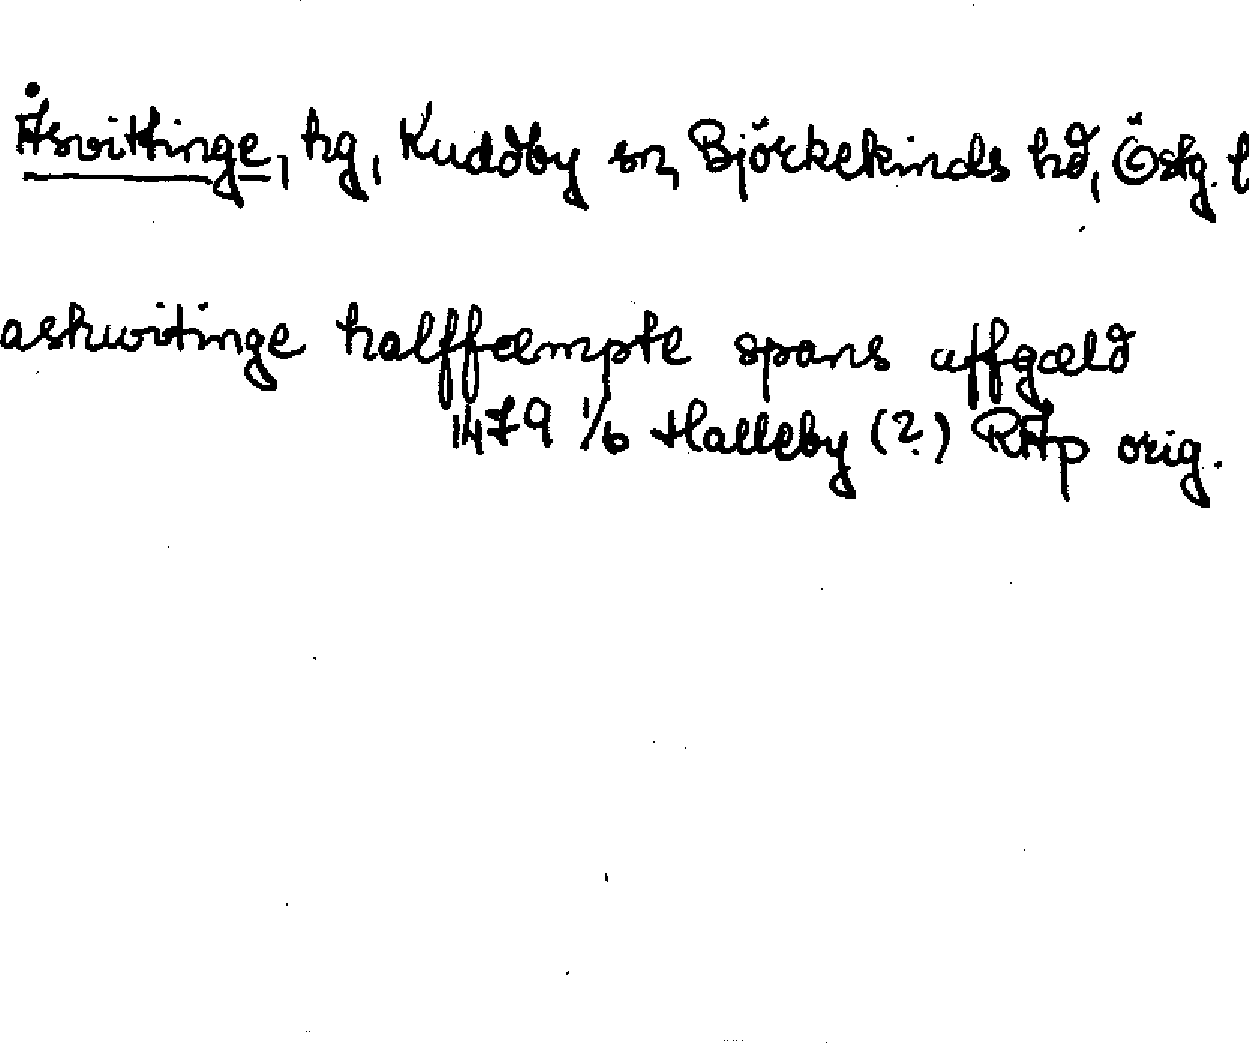 Åsvittinge, hg, Kuddby sn, Björkekinds hd, Östg. l
askwitinge halffæmpte spans affgæld
1479 1/6 Halleby (?) RAp orig.